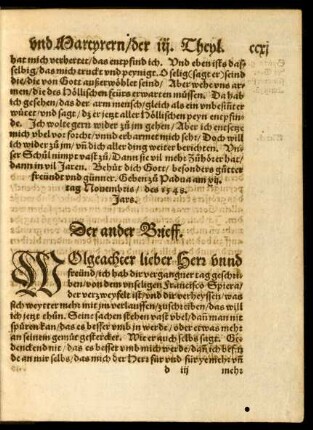 vnd Martyrern/der iij. Theyl. ccxj
hat mich verhertet/das entpfind ich. Vnd eben ists das-
selbig/das mich truckt vnd peynigt. O selig (sagt er) seind
die/die von Gott außerwöhlet seind/ Aber wehe vns ar-
men/die des Höllischen feürs erwarten müssen. Da hab
ich gesehen/das der arm mensch/gleich als ein vnbesiñter
wütet/vnd sagt/ dz er jetzt aller Höllischen peyn entpfin-
de. Ich wolte gern wider zů jm gehen/Aber ich entsetze
mich vbel vor forcht/vnnd erbarmet mich sehr/ Doch will
ich wider zů jm/ vñ dich aller ding weiter berichten. Vn-
ser Schůl nimpt vast zů/ Dann sie vil mehr Zůhörer hat/
dann in vil Jaren. Behüt dich Gott/ besonders gůtter
freündt vnd günner. Geben zů Padua am vij.
tag Nouembris/ des 1548.
Jars.
Der ander Brieff.
WOlgeachter lieber Herr vnnd
freünd/ich hab dir vergangner tag geschri-
ben/von dem vnseligen Francisco Spiera/
der verzweyflet ist/vnd dir verheyssen/was
sich weytter mehr mit jm verlauffen/zůschreiben/das will
ich jetzt thůn. Seine sachen stehen vast vbel/dañ man nit
spüren kan/das es besser vmb jn werde/ oder etwas mehr
an seinem gemüt gestercket. Wie er auch selbs sagt. Ge-
denck end nit/das es besser vmb mich werde/dañ ich befin-
de an mir selbs/das mich der Herr für vnd für ye mehr vñ
d iij mehr